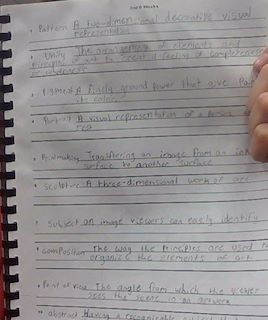 • Pattern A two-dimensional decorative visual
representation
• Unity The arrangement of elements and
principles of art to creat a feeling of completeness
• Pigment A finely ground power that give
its color.
• Portrait A visual representation of a
• Printmaking Transfering an image from an ink
surface to another surface
• Sculpture A three-dimensional work of art
• Subject an image viewers can easily identify
• composition The way the principles are used to
organize the elements of art
• Point of view The angle from which the viewer
sees the scene in an artwork
• abstract Having a recognizable